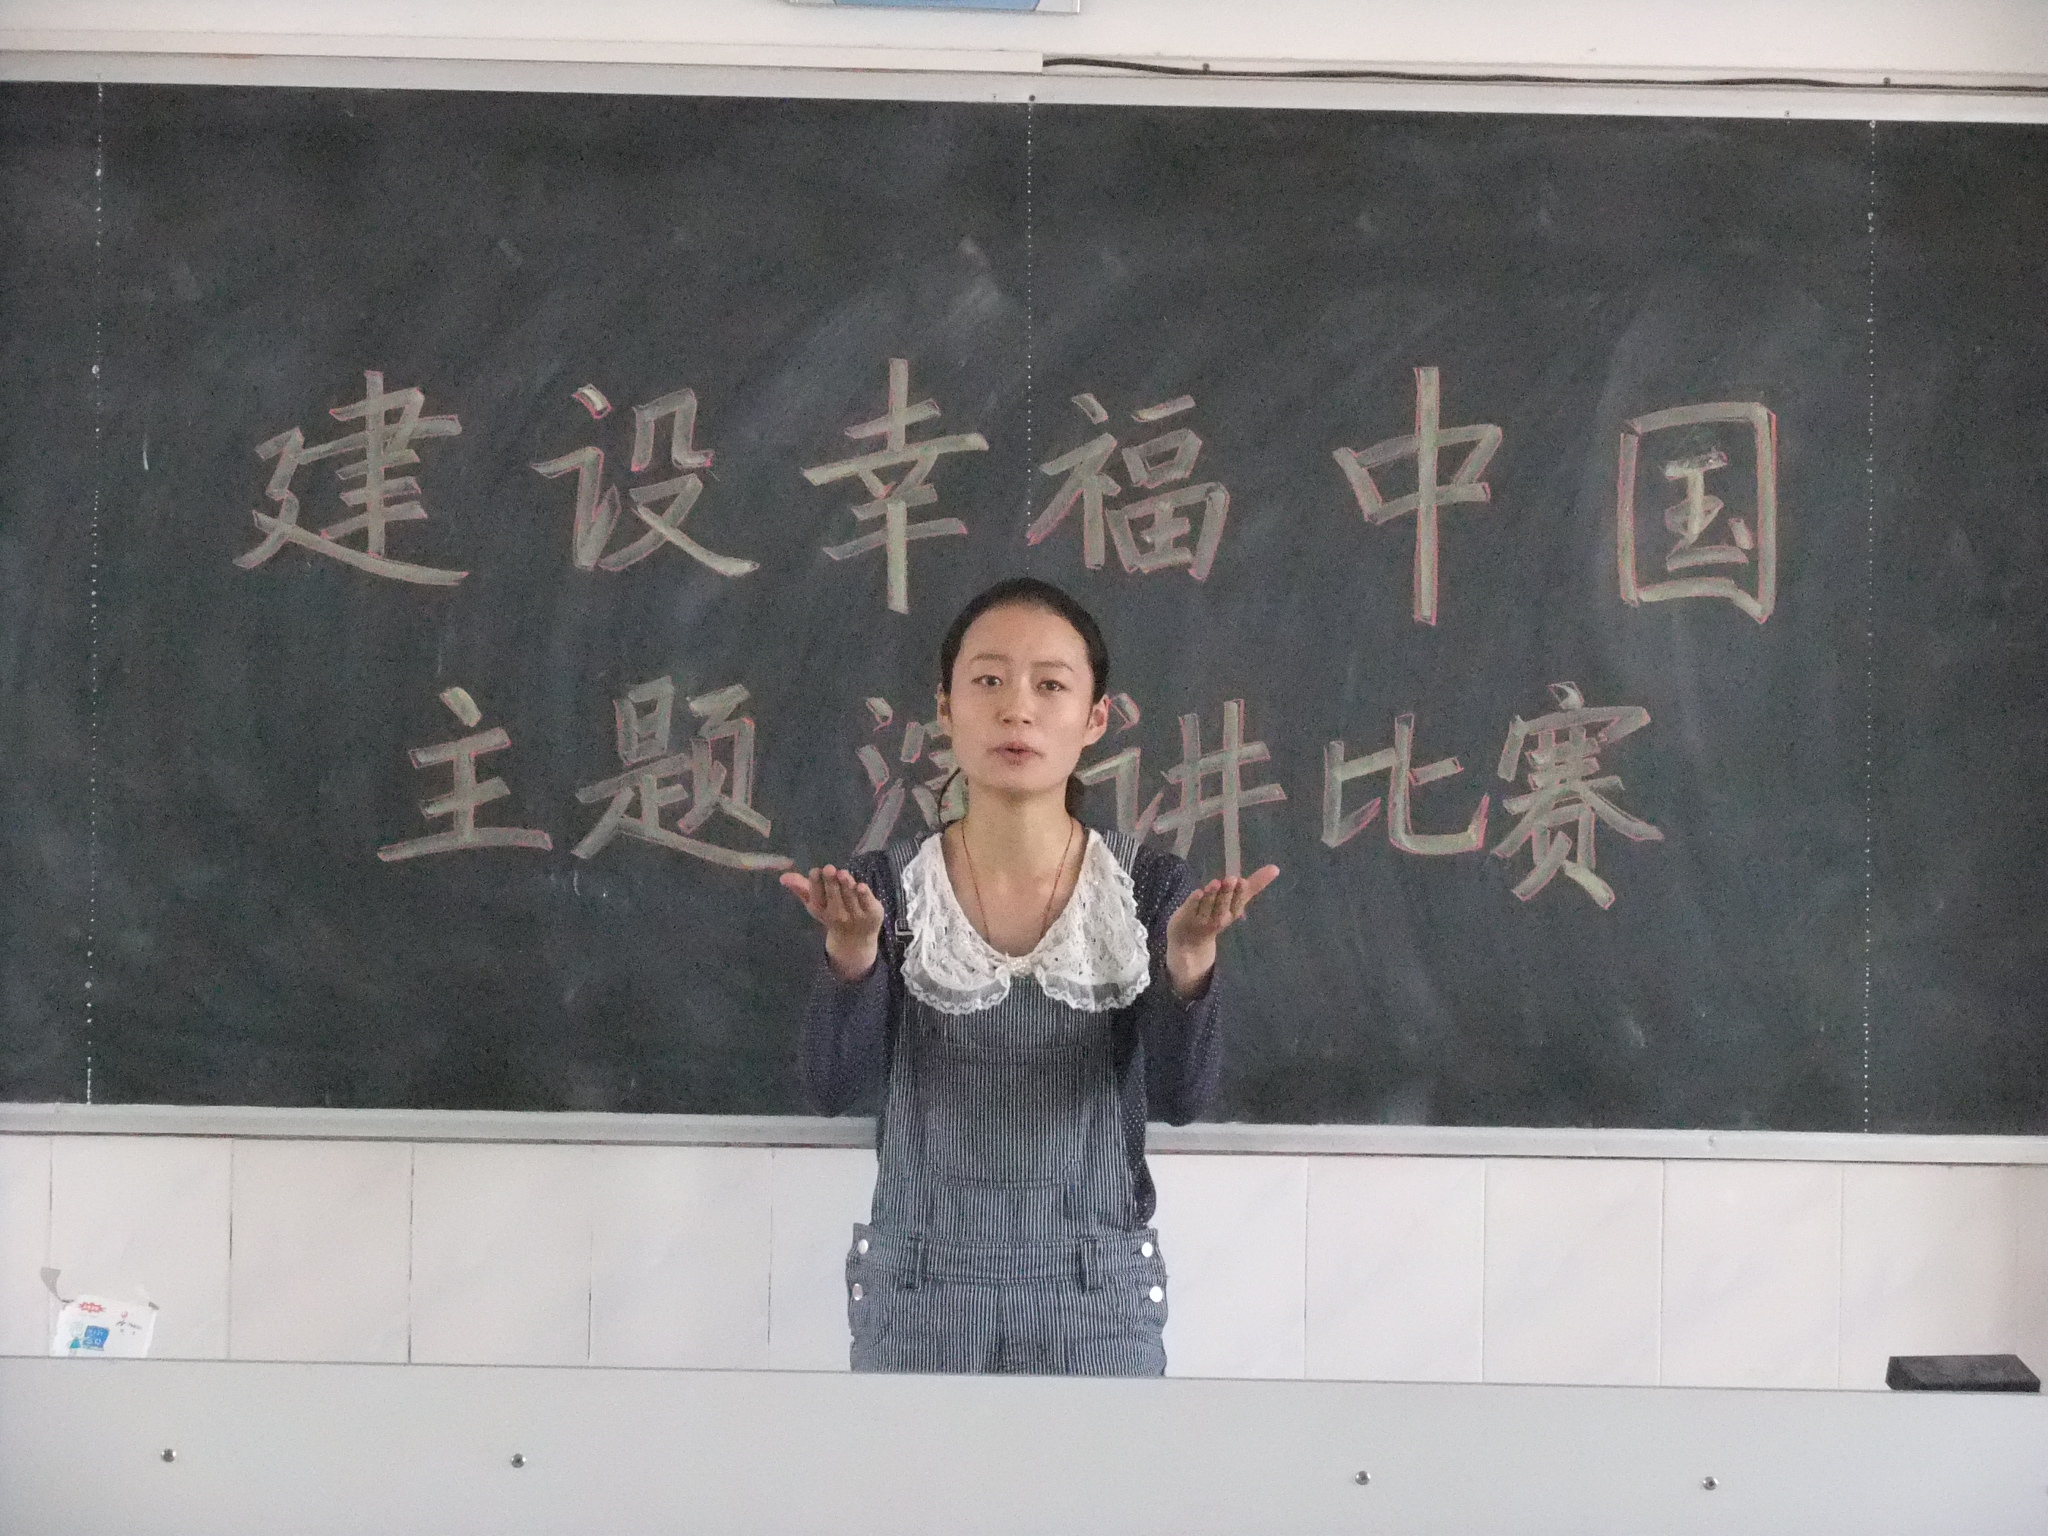 建设幸福中国
主题演讲比赛